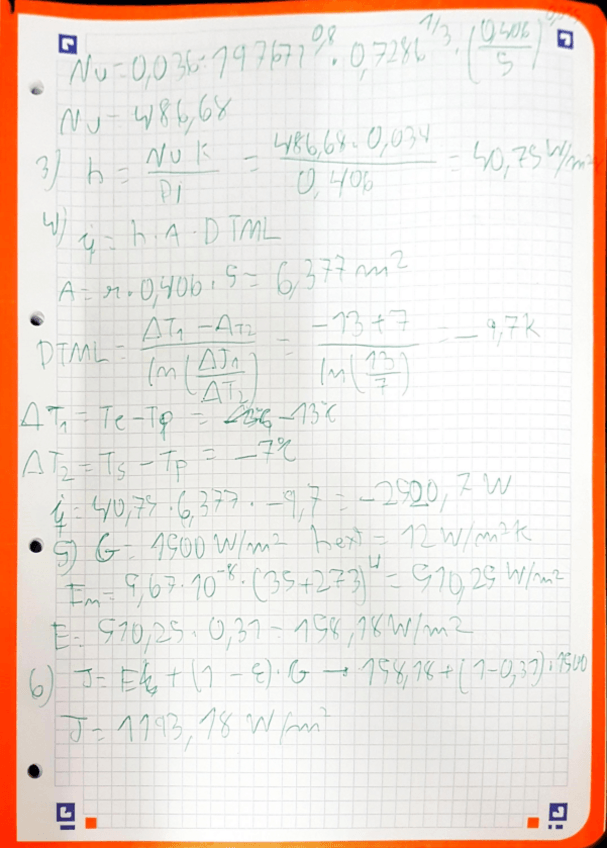 Nu = 0,036 · 197671^0,8 · 0,7286^1/3 · (0,406/5)
Nu = 486,68
3) h = Nu K / Di = 486,68 · 0,034 / 0,406 = 40,75 W/m²
4) q̇ = h · A · DTML
A = π · 0,406 · 5 = 6,377 m²
DTML = ΔT₁ - ΔT₂ / ln(ΔT₁/ΔT₂) = -13 + 7 / ln(13/7) = -9,7 K
ΔT₁ = Te - Tp = -13°C
ΔT₂ = Ts - Tp = -7°C
q̇ = 40,75 · 6,377 · -9,7 = -2520,7 W
5) G = 1500 W/m² hext = 12 W/m²K
En = 5,67 · 10⁻⁸ · (35+273)⁴ = 510,25 W/m²
E = 510,25 · 0,31 = 158,18 W/m²
6) J = E + (1 - ε) · G → 158,18 + (1-0,31) · 1500
J = 1193,18 W/m²